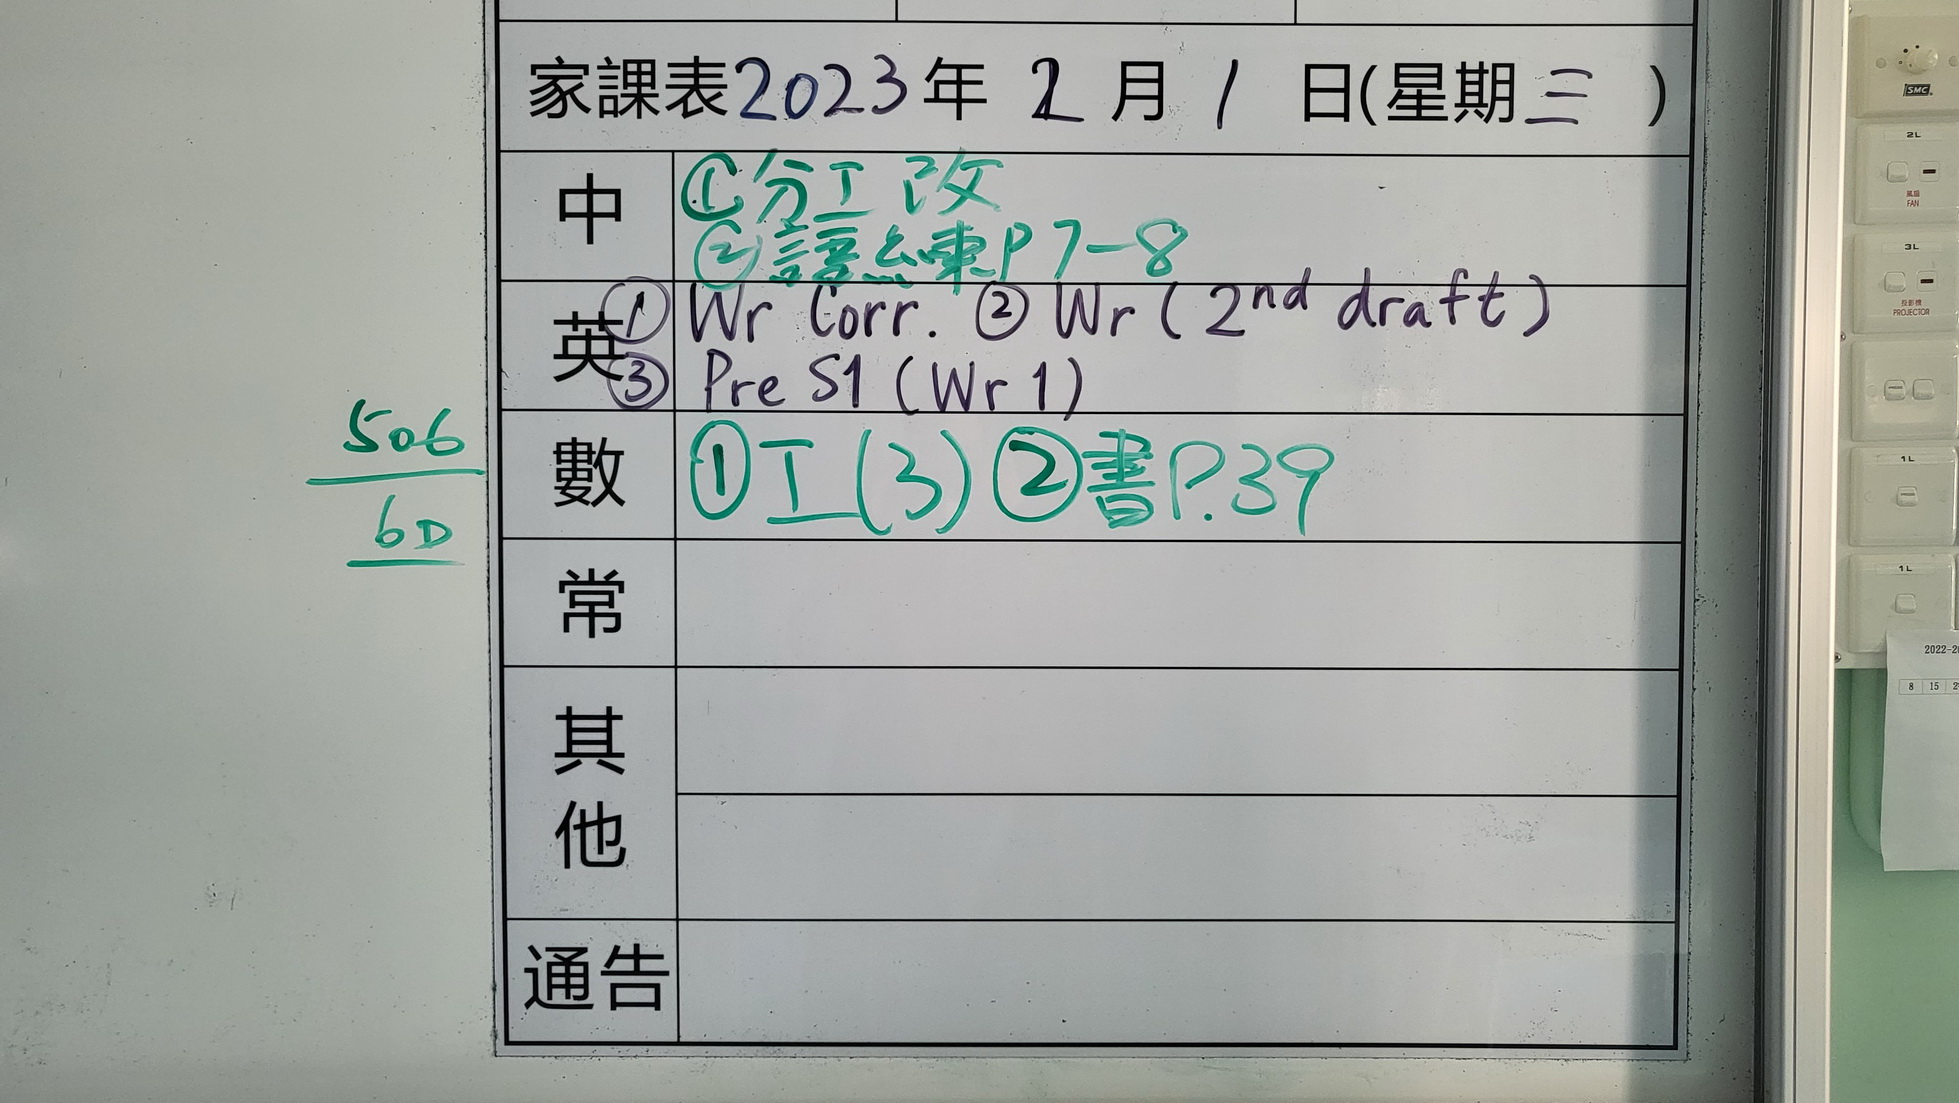 家課表2023年 2 月 1 日(星期三 )
中
①分工改
②譯練P7-8
英
① Wr Corr. ② Wr (2nd draft)
③ Pre S1 (Wr 1)
506
6D
數
①工(3) ②書P.39
常
其他
通告
SMC
2L
風扇
FAN
3L
投影機
PROJECTOR
1L
1L
8 15